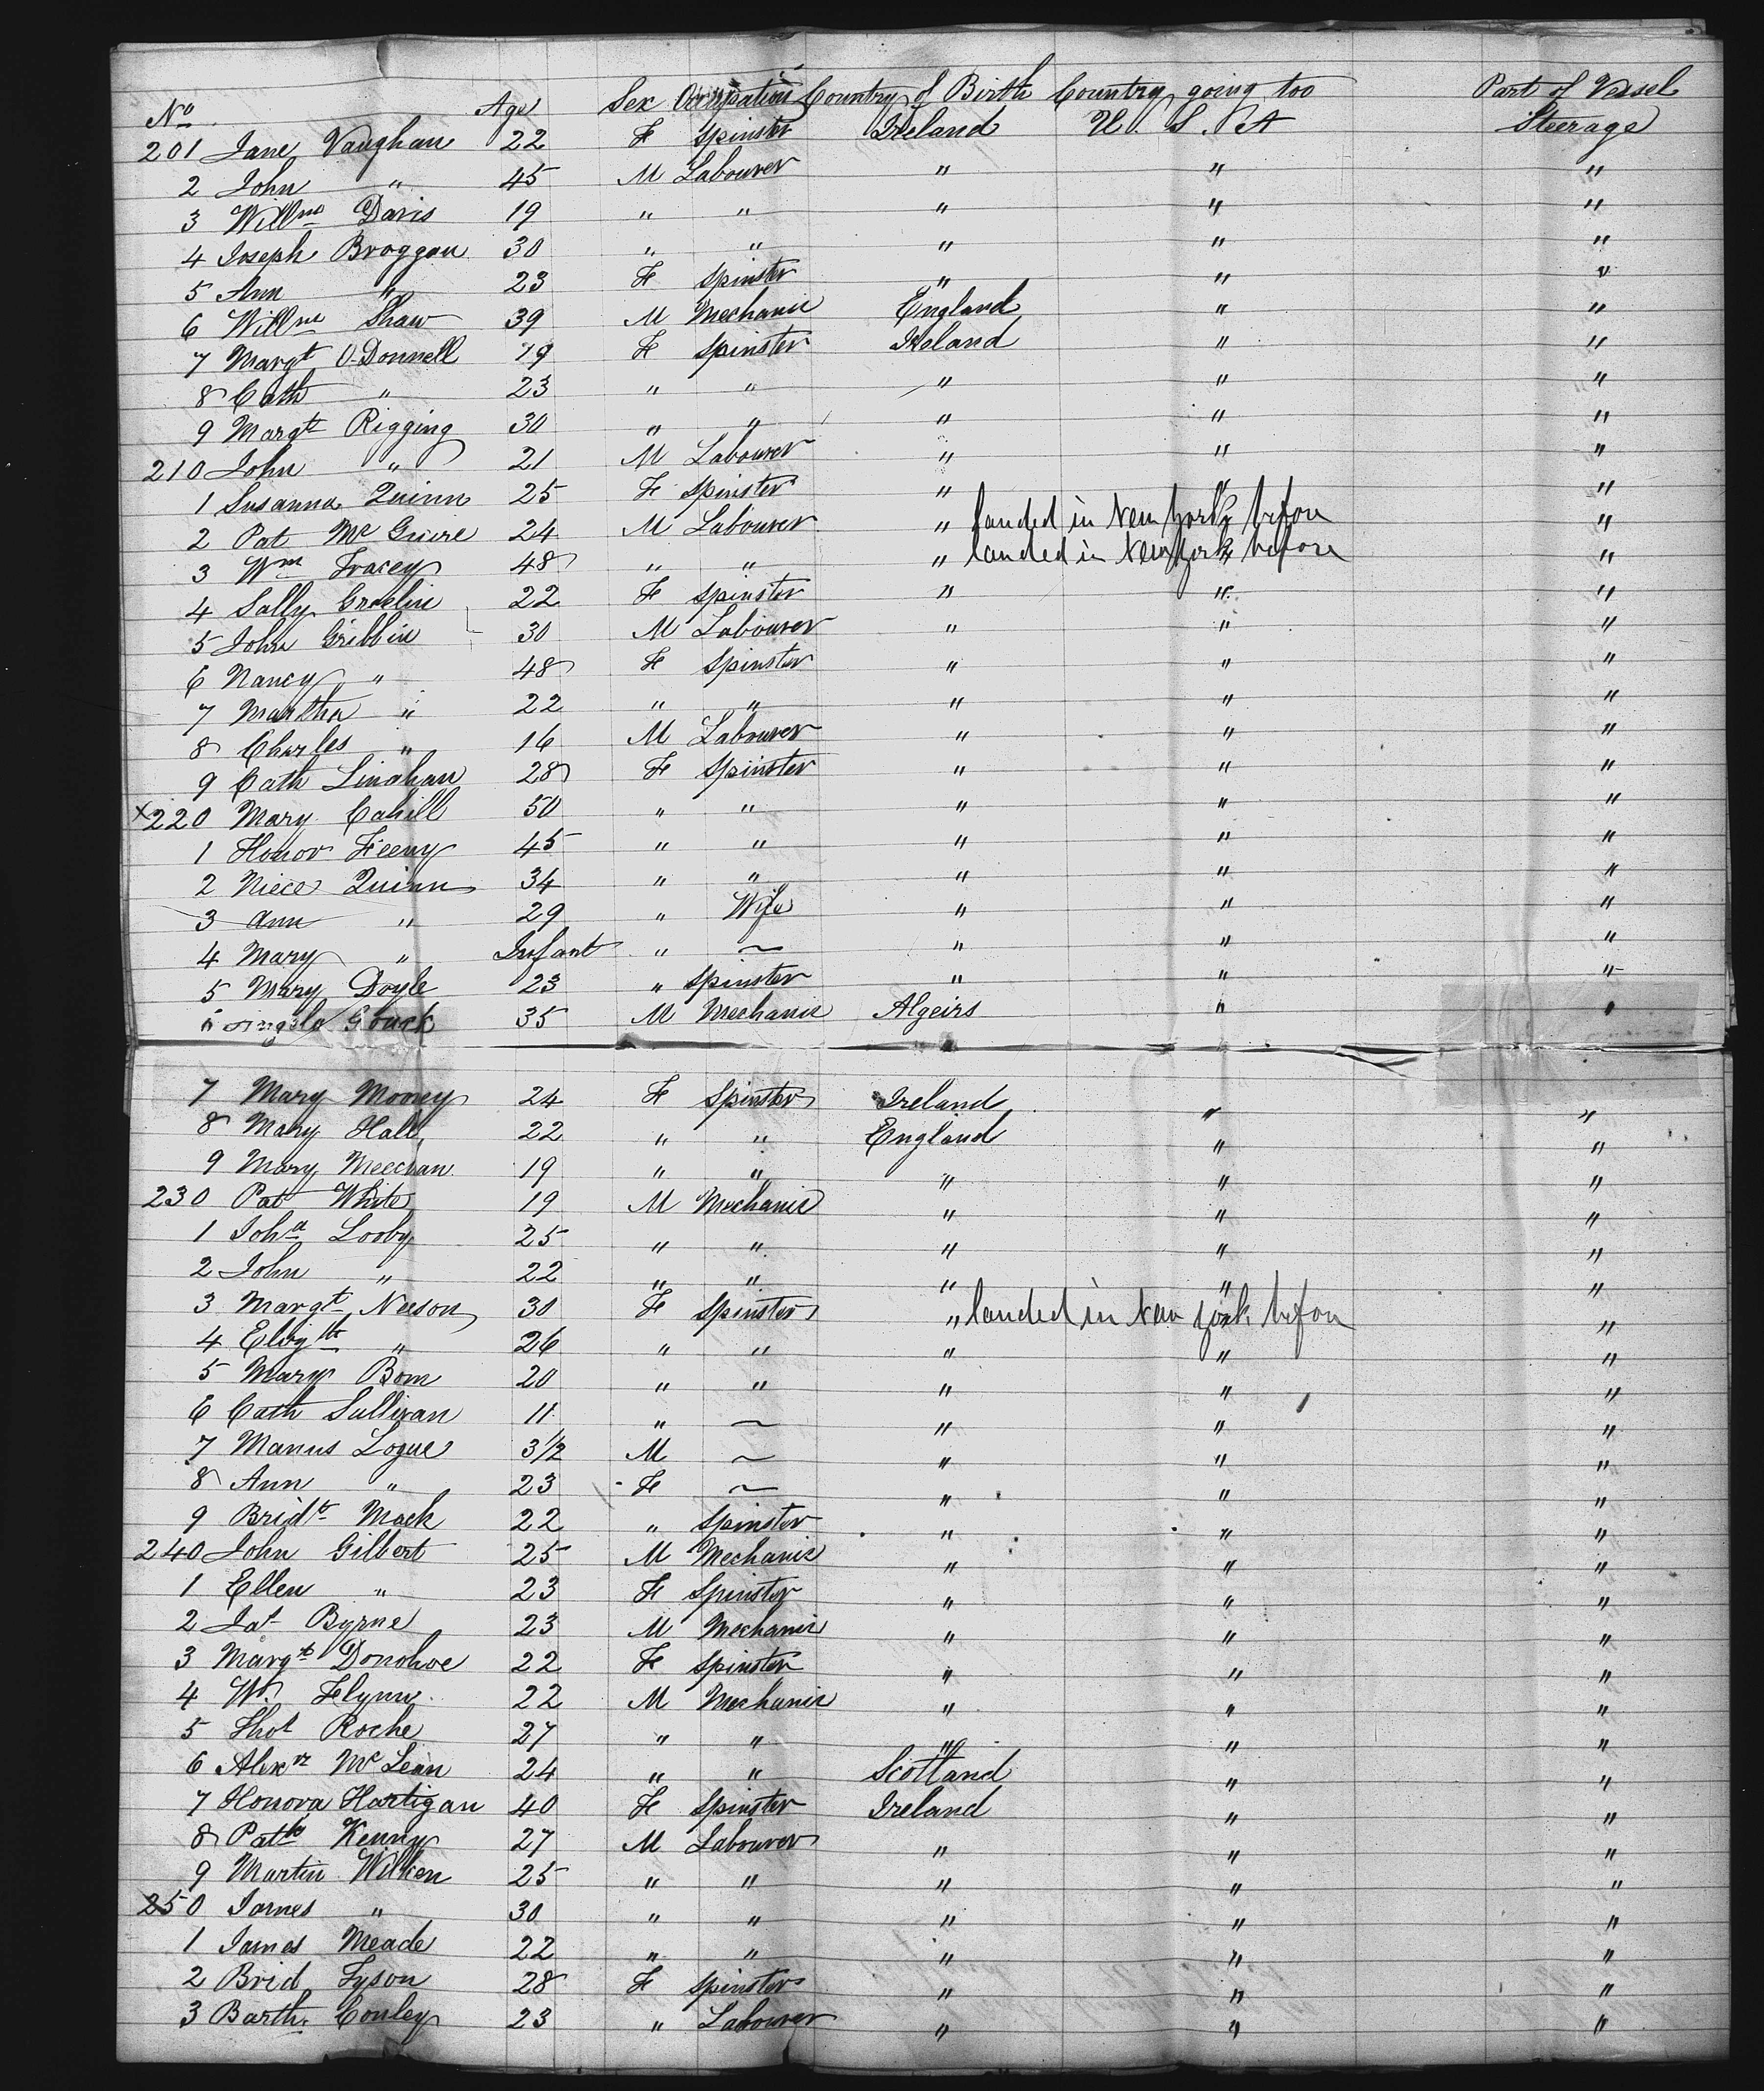 No Age Sex Occupation Country of Birth Country going too Part of Vessel
201 Jane Vaughan 22 F Spinster Ireland U. S. A Steerage
2 John " 45 M Labourer " " "
3 Willm Davis 19 " " " " "
4 Joseph Broggan 30 " " " " "
5 Ann " 23 F Spinster " " "
6 Willm Shaw 39 M Mechanic England " "
7 Margt O-Donnell 19 F Spinster Ireland " "
8 Cath " 23 " " " " "
9 Margt Rigging 30 " " " " "
210 John " 21 M Labourer " " "
1 Susanna Quinn 25 F Spinster " " "
2 Pat McGuire 24 M Labourer " landed in New York before " "
3 Wm Tracey 48 " " " landed in New York before " "
4 Sally 22 F Spinster " " "
5 John Gribbin 30 M Labourer " " "
6 Nancy " 48 F Spinster " " "
7 Martha " 22 " " " " "
8 Charles " 16 M Labourer " " "
9 Cath Linahan 28 F Spinster " " "
x220 Mary Cahill 50 " " " " "
1 Honor Feeny 45 " " " " "
2 Niece Quinn 34 " " " " "
3 Ann " 29 " Wife " " "
4 Mary " Infant " ~ " " "
5 Mary Doyle 23 " Spinster " " "
6 Angelo Gouck 35 M Mechanic Algeirs " "
7 Mary Money 24 F Spinster Ireland " "
8 Mary Hall 22 " " England " "
9 Mary Meechan 19 " " " " "
230 Pat White 19 M Mechanic " " "
1 Joha Looby 25 " " " " "
2 John " 22 " " " " "
3 Margt Neeson 30 F Spinster " landed in New York before " "
4 " 26 " " " " "
5 Mary Bom 20 " " " " "
6 Cath Sullivan 11 " ~ " " "
7 Manus Logue 3 1/2 M ~ " " "
8 Ann " 23 F ~ " " "
9 Bridt Mack 22 " Spinster " " "
240 John Gilbert 25 M Mechanic " " "
1 Ellen " 23 F Spinster " " "
2 Byrne 23 M Mechanic " " "
3 Margt Donohoe 22 F Spinster " " "
4 Wm Flynn 22 M Mechanic " " "
5 Thos Roche 27 " " " " "
6 Alexr McLean 24 " " Scotland " "
7 Honora Hartigan 40 F Spinster Ireland " "
8 Patk Kenny 27 M Labourer " " "
9 Martin Wilken 25 " " " " "
250 James " 30 " " " " "
1 James Meade 22 " " " " "
2 Brid Tyson 28 F Spinster " " "
3 Barth. Conley 23 " Labourer " " "